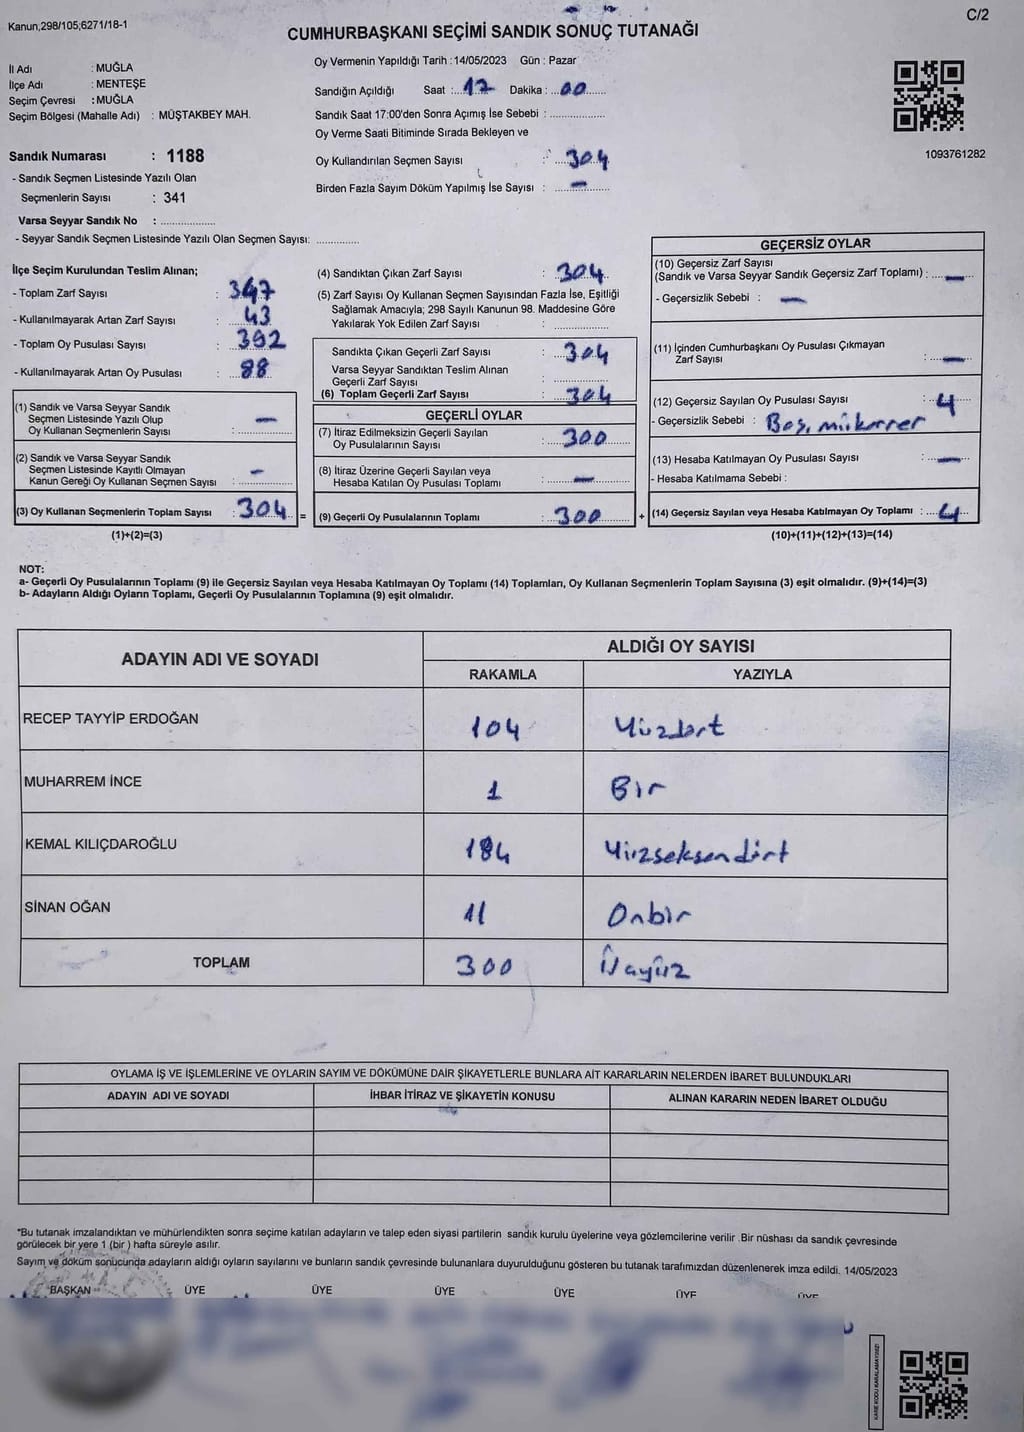 Kanun;298/105;6271/18-1
C/2
CUMHURBAŞKANI SEÇİMİ SANDIK SONUÇ TUTANAĞI
İl Adı : MUĞLA
İlçe Adı : MENTEŞE
Seçim Çevresi : MUĞLA
Seçim Bölgesi (Mahalle Adı) : MÜŞTAKBEY MAH.
Sandık Numarası : 1188
- Sandık Seçmen Listesinde Yazılı Olan
Seçmenlerin Sayısı : 341
Varsa Seyyar Sandık No : ................
- Seyyar Sandık Seçmen Listesinde Yazılı Olan Seçmen Sayısı: .............
Oy Vermenin Yapıldığı Tarih : 14/05/2023 Gün : Pazar
Sandığın Açıldığı Saat : 17 Dakika : 00
Sandık Saat 17:00'den Sonra Açımış İse Sebebi : ..................
Oy Verme Saati Bitiminde Sırada Bekleyen ve
Oy Kullandırılan Seçmen Sayısı : 304
Birden Fazla Sayım Döküm Yapılmış İse Sayısı : —
1093761282
İlçe Seçim Kurulundan Teslim Alınan;
- Toplam Zarf Sayısı : 347
- Kullanılmayarak Artan Zarf Sayısı : 43
- Toplam Oy Pusulası Sayısı : 392
- Kullanılmayarak Artan Oy Pusulası : 88
(1) Sandık ve Varsa Seyyar Sandık
Seçmen Listesinde Yazılı Olup
Oy Kullanan Seçmenlerin Sayısı : —
(2) Sandık ve Varsa Seyyar Sandık
Seçmen Listesinde Kayıtlı Olmayan
Kanun Gereği Oy Kullanan Seçmen Sayısı : —
(3) Oy Kullanan Seçmenlerin Toplam Sayısı : 304 =
(1)+(2)=(3)
(4) Sandıktan Çıkan Zarf Sayısı : 304
(5) Zarf Sayısı Oy Kullanan Seçmen Sayısından Fazla İse, Eşitliği
Sağlamak Amacıyla; 298 Sayılı Kanunun 98. Maddesine Göre
Yakılarak Yok Edilen Zarf Sayısı : ..................
Sandıkta Çıkan Geçerli Zarf Sayısı : 304
Varsa Seyyar Sandıktan Teslim Alınan
Geçerli Zarf Sayısı : ..................
(6) Toplam Geçerli Zarf Sayısı : 304
GEÇERLİ OYLAR
(7) İtiraz Edilmeksizin Geçerli Sayılan
Oy Pusulalarının Sayısı : 300
(8) İtiraz Üzerine Geçerli Sayılan veya
Hesaba Katılan Oy Pusulası Toplamı : —
(9) Geçerli Oy Pusulalarının Toplamı : 300 +
GEÇERSİZ OYLAR
(10) Geçersiz Zarf Sayısı
(Sandık ve Varsa Seyyar Sandık Geçersiz Zarf Toplamı) : —
- Geçersizlik Sebebi : —
(11) İçinden Cumhurbaşkanı Oy Pusulası Çıkmayan
Zarf Sayısı : —
(12) Geçersiz Sayılan Oy Pusulası Sayısı : 4
- Geçersizlik Sebebi : Boş, mükerrer
(13) Hesaba Katılmayan Oy Pusulası Sayısı : —
- Hesaba Katılmama Sebebi :
(14) Geçersiz Sayılan veya Hesaba Katılmayan Oy Toplamı : 4
(10)+(11)+(12)+(13)=(14)
NOT:
a- Geçerli Oy Pusulalarının Toplamı (9) ile Geçersiz Sayılan veya Hesaba Katılmayan Oy Toplamı (14) Toplamları, Oy Kullanan Seçmenlerin Toplam Sayısına (3) eşit olmalıdır. (9)+(14)=(3)
b- Adayların Aldığı Oyların Toplamı, Geçerli Oy Pusulalarının Toplamına (9) eşit olmalıdır.
ADAYIN ADI VE SOYADI ALDIĞI OY SAYISI
RAKAMLA YAZIYLA
RECEP TAYYİP ERDOĞAN 104 Yüzdört
MUHARREM İNCE 1 Bir
KEMAL KILIÇDAROĞLU 184 Yüzseksendört
SİNAN OĞAN 11 Onbir
TOPLAM 300 Üçyüz
OYLAMA İŞ VE İŞLEMLERİNE VE OYLARIN SAYIM VE DÖKÜMÜNE DAİR ŞİKAYETLERLE BUNLARA AİT KARARLARIN NELERDEN İBARET BULUNDUKLARI
ADAYIN ADI VE SOYADI İHBAR İTİRAZ VE ŞİKAYETİN KONUSU ALINAN KARARIN NEDEN İBARET OLDUĞU
*Bu tutanak imzalandıktan ve mühürlendikten sonra seçime katılan adayların ve talep eden siyasi partilerin sandık kurulu üyelerine veya gözlemcilerine verilir .Bir nüshası da sandık çevresinde
görülecek bir yere 1 (bir ) hafta süreyle asılır.
Sayım ve döküm sonucunda adayların aldığı oyların sayılarını ve bunların sandık çevresinde bulunanlara duyurulduğunu gösteren bu tutanak tarafımızdan düzenlenerek imza edildi. 14/05/2023
BAŞKAN ÜYE ÜYE ÜYE ÜYE ÜYE ÜYE
KARE KODU KARALAMAYINIZ!